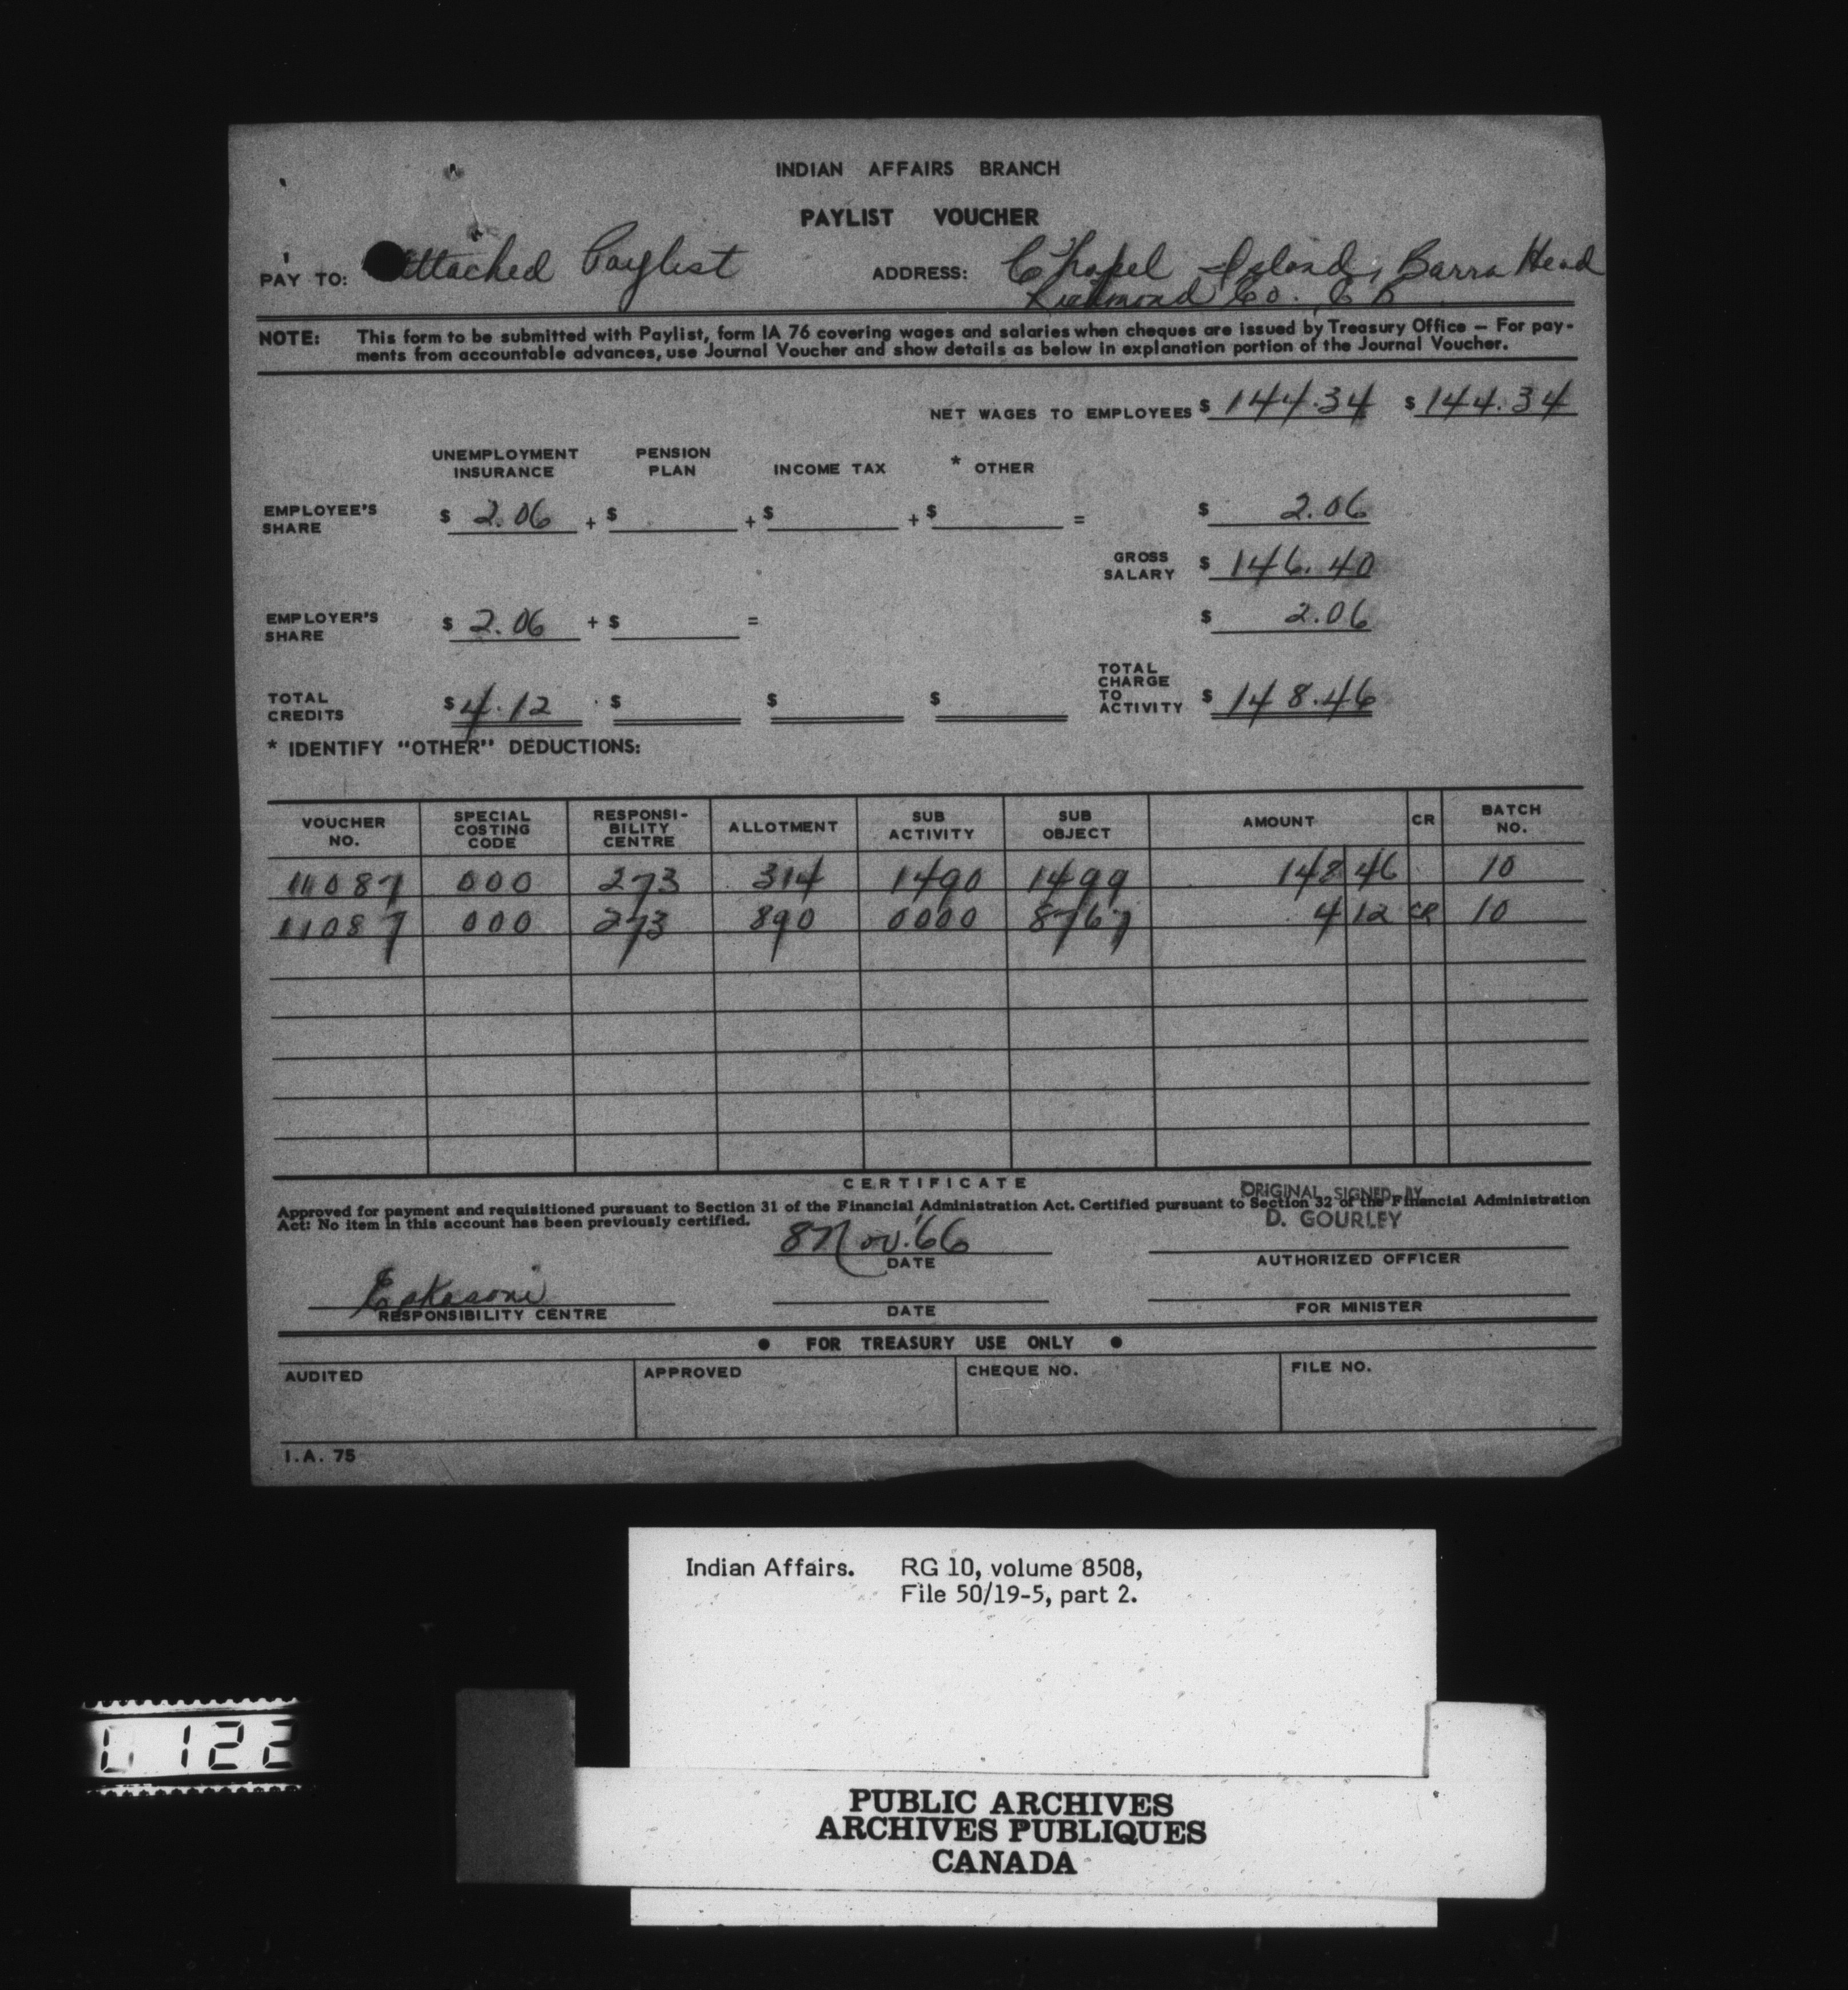 INDIAN AFFAIRS BRANCH
PAYLIST VOUCHER
PAY TO: Attached Paylist ADDRESS: Chapel Island, Barra Head
Richmond Co. C B
NOTE: This form to be submitted with Paylist, form IA 76 covering wages and salaries when cheques are issued by Treasury Office – For pay-
ments from accountable advances, use Journal Voucher and show details as below in explanation portion of the Journal Voucher.
NET WAGES TO EMPLOYEES $ 144.34 $ 144.34
UNEMPLOYMENT INSURANCE PENSION PLAN INCOME TAX * OTHER
EMPLOYEE'S SHARE $ 2.06 + $ + $ + $ = $ 2.06
GROSS SALARY $ 146.40
EMPLOYER'S SHARE $ 2.06 + $ = $ 2.06
TOTAL CREDITS $ 4.12 $ $ $ TOTAL CHARGE TO ACTIVITY $ 148.46
* IDENTIFY "OTHER" DEDUCTIONS:
VOUCHER NO. SPECIAL COSTING CODE RESPONSI- BILITY CENTRE ALLOTMENT SUB ACTIVITY SUB OBJECT AMOUNT CR BATCH NO.
11087 000 273 314 1490 1499 148 46 10
11087 000 273 890 0000 8767 4 12 CR 10
CERTIFICATE
ORIGINAL SIGNED BY
Approved for payment and requisitioned pursuant to Section 31 of the Financial Administration Act. Certified pursuant to Section 32 of the Financial Administration
Act: No item in this account has been previously certified.
D. GOURLEY
8 Nov. '66
DATE AUTHORIZED OFFICER
Eskasoni
RESPONSIBILITY CENTRE DATE FOR MINISTER
• FOR TREASURY USE ONLY •
AUDITED APPROVED CHEQUE NO. FILE NO.
I.A. 75
Indian Affairs. RG 10, volume 8508,
File 50/19-5, part 2.
122
PUBLIC ARCHIVES
ARCHIVES PUBLIQUES
CANADA